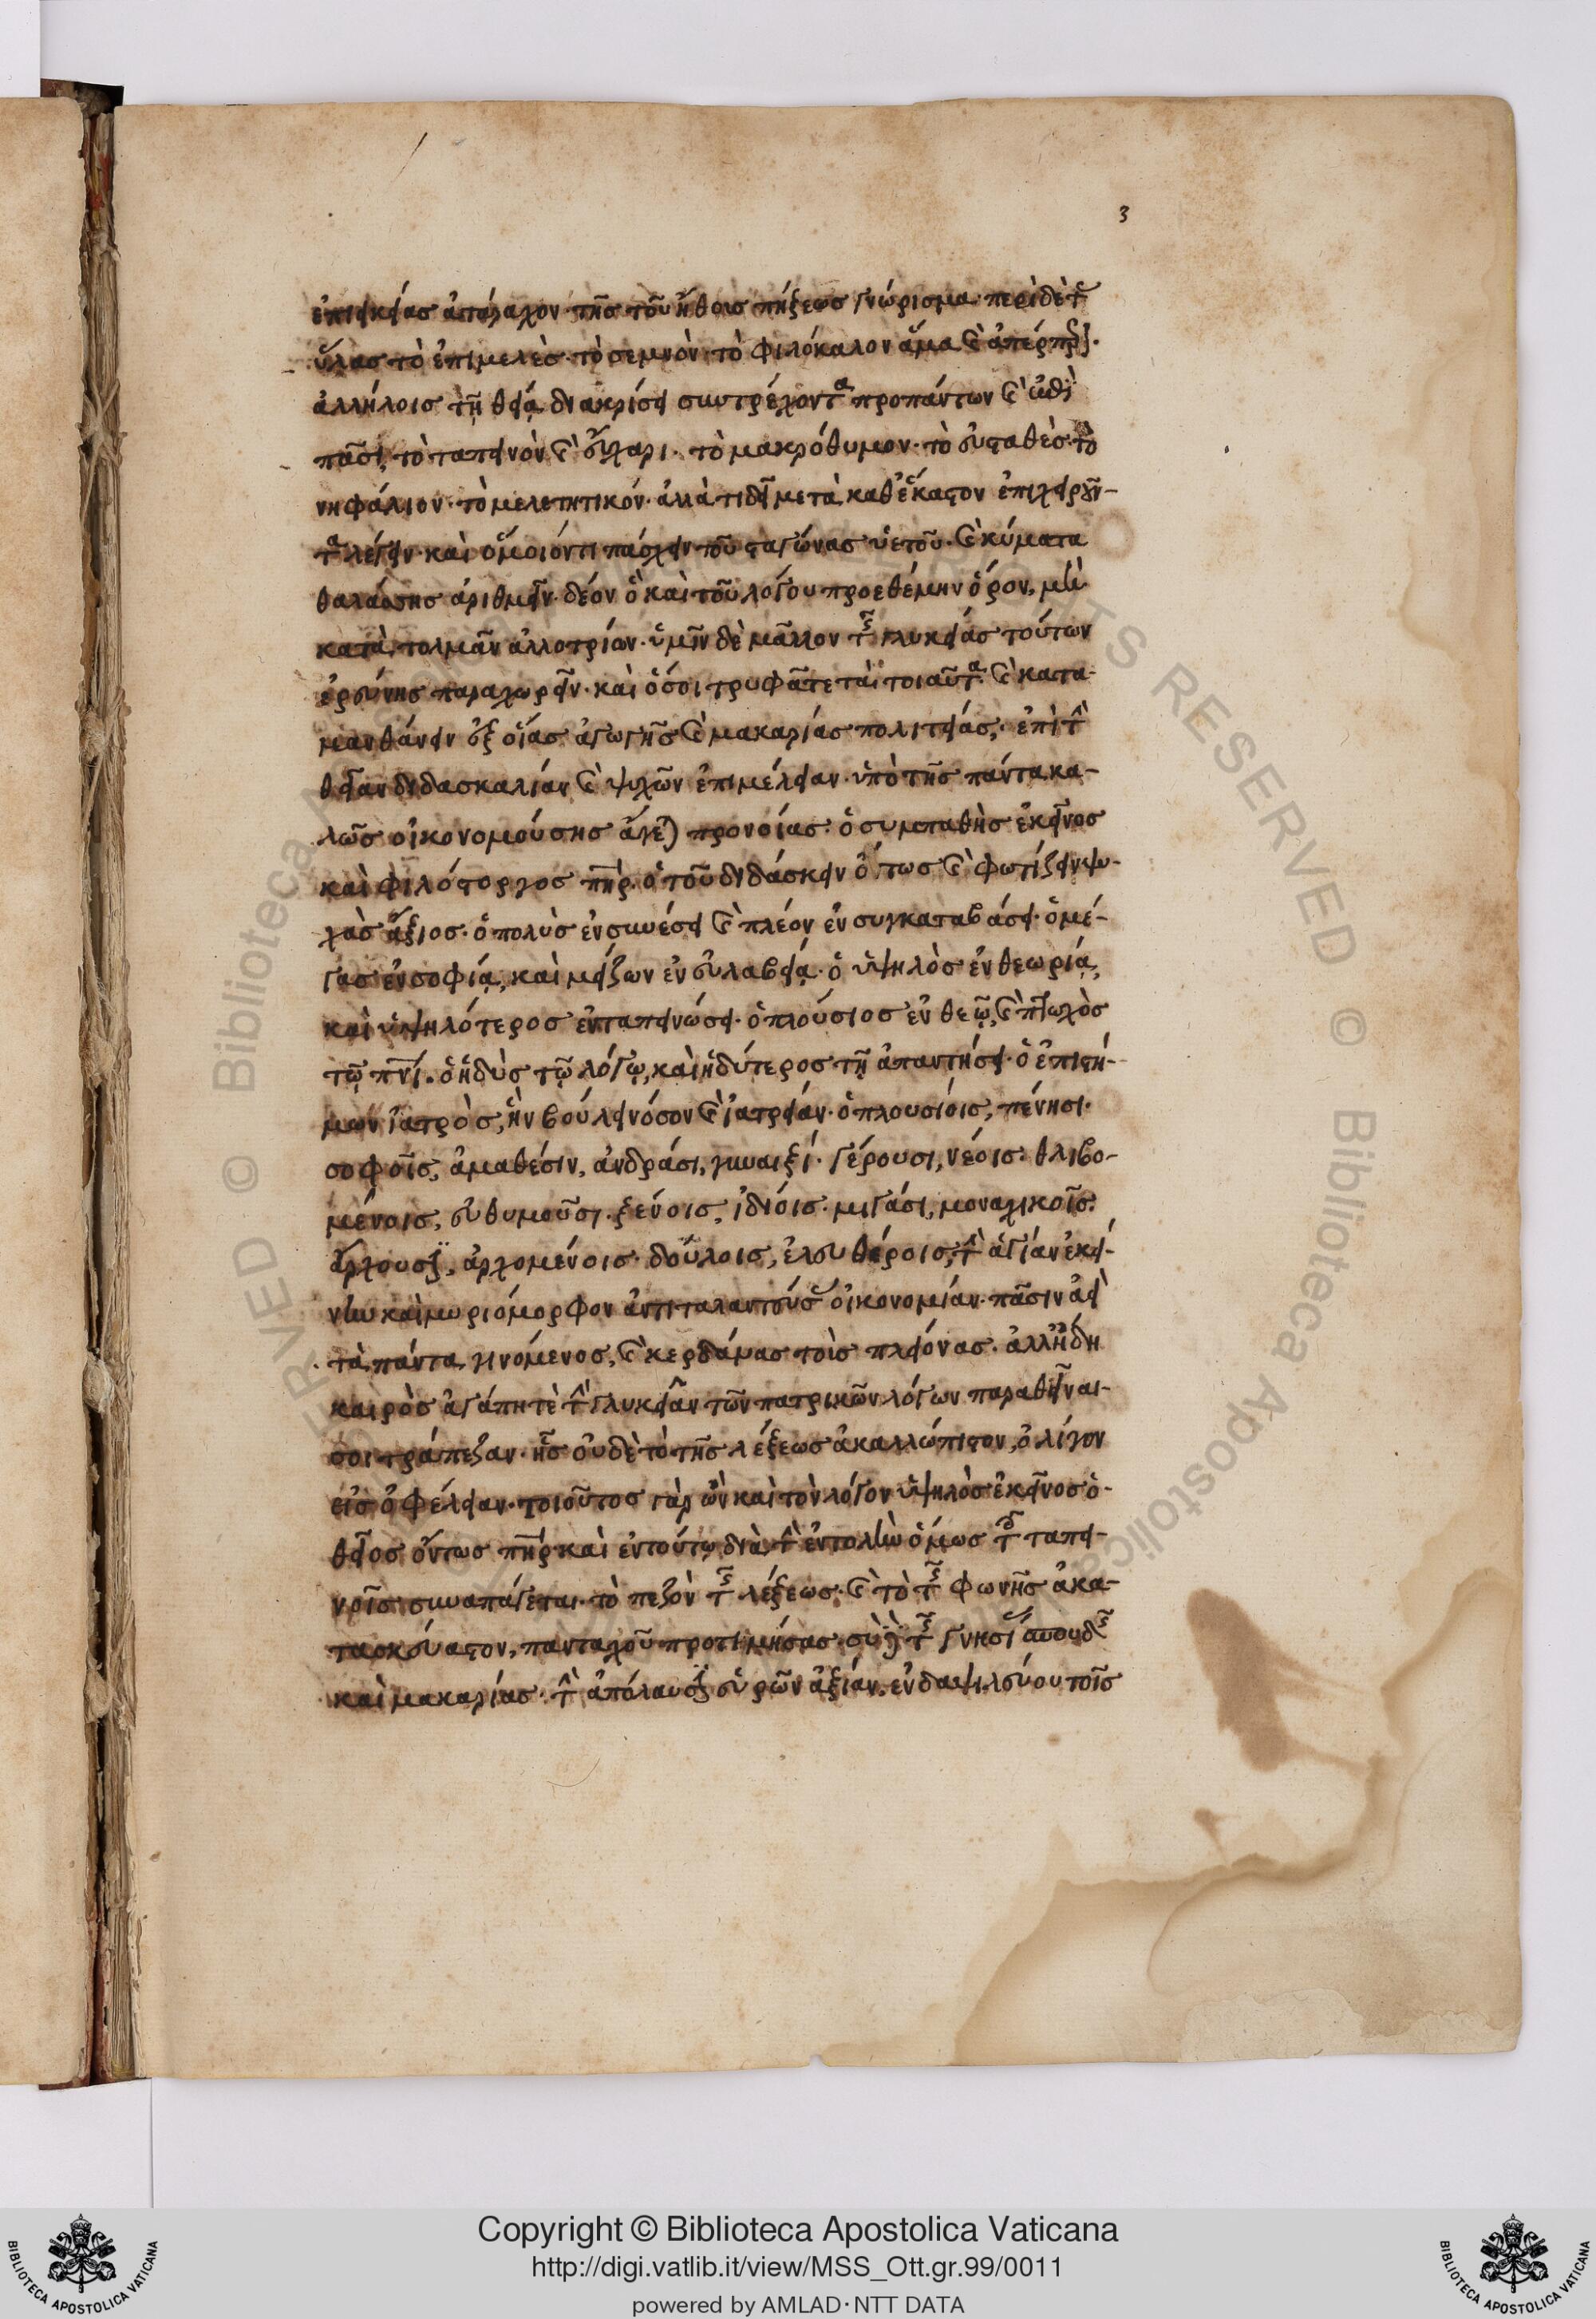 3
ἐπιεικείας ἀτάραχον τῆς τοῦ ἤθους πήξεως γνώρισμα· περὶ δὲ τὰς
ὕλας τὸ ἐπιμελὲς· τὸ σεμνὸν· τὸ φιλόκαλον ἅμα καὶ
ἀλλήλοις τῇ θείᾳ διακρίσει συντρέχοντα προπάντων καὶ
πᾶσι, τὸ ταπεινὸν καὶ εὔχαρι· τὸ μακρόθυμον· τὸ εὐσταθὲς· τὸ
νηφάλιον· τὸ μελετητικόν· ἀλλὰ τί δεῖ με τὰ καθ' ἕκαστον ἐπιχειροῦν-
τα λέγειν· καὶ ὅμοιόν τι πάσχειν τοῦ σταγόνας ὑετοῦ· καὶ κύματα
θαλάσσης ἀριθμεῖν· δέον ὃ καὶ τοῦ λόγου προεθέμην ὅρον, μὴ
κατατολμᾶν ἀλλοτρίων· ὑμῖν δὲ μᾶλλον τῆς γλυκείας τούτων
ἐρεύνης παραχωρεῖν· καὶ ὅσοι τρυφᾶτε τὰ τοιαῦτα· καὶ κατα-
μανθάνειν ἐξ οἵας ἀγωγῆς καὶ μακαρίας πολιτείας, ἐπὶ τὴν
θείαν διδασκαλίαν καὶ ψυχῶν ἐπιμέλειαν· ὑπὸ τῆς πάντα κα-
λῶς οἰκονομούσης ἄγεται προνοίας· ὁ συμπαθὴς ἐκεῖνος
καὶ φιλόστοργος πηρ· ὁ τοῦ διδάσκειν ὄντως καὶ φωτίζειν ψυ-
χὰς ἄξιος· ὁ πολὺς ἐν συνέσει καὶ πλέον ἐν συγκαταβάσει· ὁ μέ-
γας ἐν σοφίᾳ, καὶ μείζων ἐν εὐλαβείᾳ· ὁ ὑψηλὸς ἐν θεωρίᾳ,
καὶ ὑψηλότερος ἐν ταπεινώσει· ὁ πλούσιος ἐν θεῷ, καὶ πτωχὸς
τῷ πνι· ὁ ἡδὺς τῷ λόγῳ, καὶ ἡδύτερος τῇ ἀπαντήσει· ὁ ἐπιστή-
μων ἰατρὸς, ἣν βούλει νόσον καὶ ἰατρείαν· ὁ πλουσίοις, πένησι·
σοφοῖς, ἀμαθέσιν, ἀνδράσι, γυναιξί· γέρουσι, νέοις· θλιβο-
μένοις, εὐθυμοῦσι· ξένοις, ἰδίοις· μιγάσι, μοναχικοῖς·
ἄρχουσιν, ἀρχομένοις· δούλοις, ἐλευθέροις, τὴν ἁγίαν ἐκεί-
νην καὶ μυριόμορφον ἀντιταλαντεύσας οἰκονομίαν· πᾶσιν ἀεὶ
τὰ πάντα γινόμενος, καὶ κερδάνας τοὺς πλείονας· ἀλλ' ἤδη
καιρὸς ἀγάπητὲ τὴν γλυκεῖαν τῶν πατρικῶν λόγων παραθεῖναι-
σοι τράπεζαν· ἧς οὐδὲ τὸ τῆς λέξεως ἀκαλλώπιστον, ὀλίγον
εἰς ὀφέλειαν· τοιοῦτος γὰρ ὢν καὶ τὸν λόγον ὑψηλὸς ἐκεῖνος ὁ-
θεῖος ὄντως πηρ καὶ ἐν τούτῳ διὰ τὴν ἐντολὴν ὅμως τοῖς ταπει-
νοῖς συναπάγεται· τὸ πεζὸν τῆς λέξεως· καὶ τὸ τῆς φωνῆς ἀκα-
τασκεύαστον, πανταχοῦ προτιμήσας· σὺ τῆς γνησίας σπουδῆς
καὶ μακαρίας· τὴν ἀπόλαυσιν εὑρὼν ἀξίαν, ἐνδαψιλεύου τοῖς
Copyright © Biblioteca Apostolica Vaticana
http://digi.vatlib.it/view/MSS_Ott.gr.99/0011
powered by AMLAD·NTT DATA